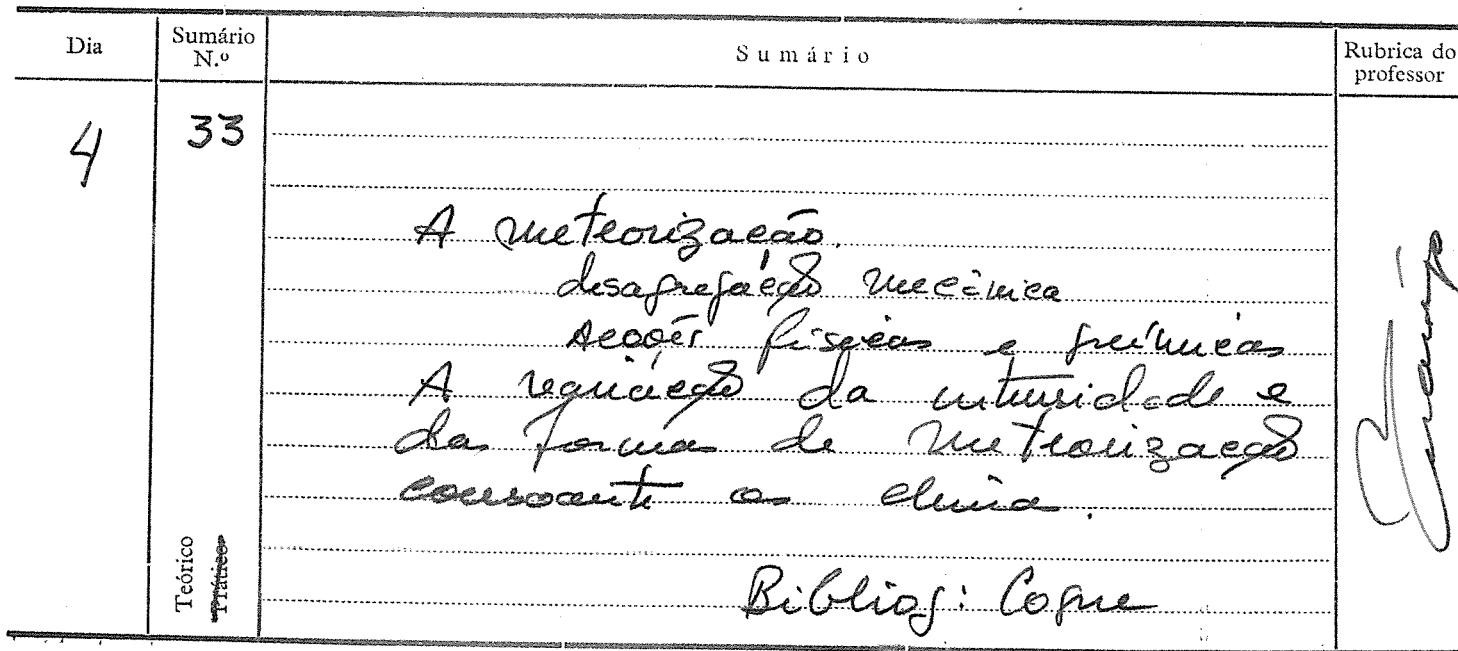 Dia
Sumário N.º
Sumário
Rubrica do professor
4
33
A meteorização.
desagregação mecânica
Acções físicas e químicas
A variação da intensidade e
das formas de meteorização
consoante os clima.
Teórico
Prático
Bibliog: Coque